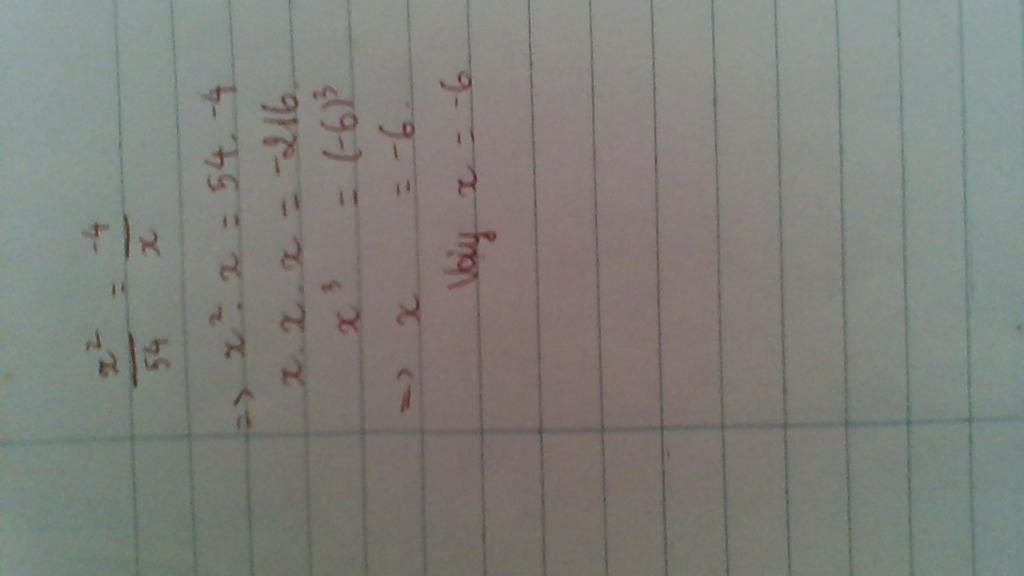 x²/54 = -4/x
=> x² . x = 54 . -4
x . x . x = -216
x³ = (-6)³
=> x = -6.
Vậy x = -6